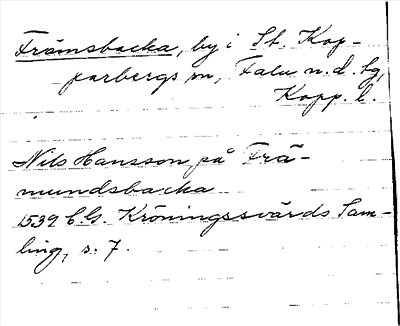 Främsbacka, by i St. Kop-
parbergs sn, Falu n. d. tg,
Kopp. l.
Nils Hansson på Frä-
mundsbacka
1539 C. G. Kröningssvärds Sam-
ling, s. 7.